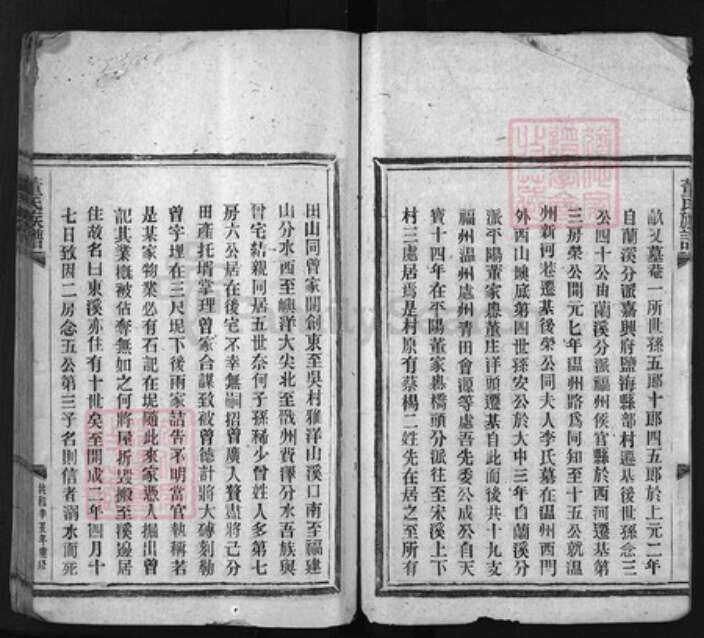 畝又墓菴一所世孫五郎十郎四五郎於上元二年
自蘭溪分派嘉興府鹽海縣部村遷基後世孫念三
公四十公由蘭溪分派福州侯官縣於西河遷基第
三房榮公開元七年温州路爲同知至十五公就温
州新河巷遷基後榮公同夫人李氏墓在温州西門
外西山墺底第四世孫安公於大中三年自蘭溪分
派平陽董家嶴董庄洋頭遷基自此而後共十九支
福州温州處州青田會源等處吾先委公成公自天
寶十四年在平陽董家嶴橋頭分派往至宋溪上下
村三處居焉是村原有蔡楊二姓先在居之至所有
田山同曾家開創東至吳村雅洋山溪口南至福建
山分水西至嶼洋大尖北至戬州費澤分水吾族與
曾宅結親同居五世奈何子孫稀少曾姓人多第七
房六公居在後宅不幸無嗣招曾廣人贅盡將己分
田產托壻掌理曾家合謀致被曾德計將大磚刻勒
曾字埋在三尺坭下後兩家詰告不明當官執稱若
是某家物業必有石記在坭隨此來家憑人掘出曾
記其業槪被佔奪無如之何將屋折毁搬至溪邊居
住故名曰東溪亦住有十世矣至開成二年四月十
七日致因二房念五公第三子名則信者溺水而死
董氏族譜
董氏族譜